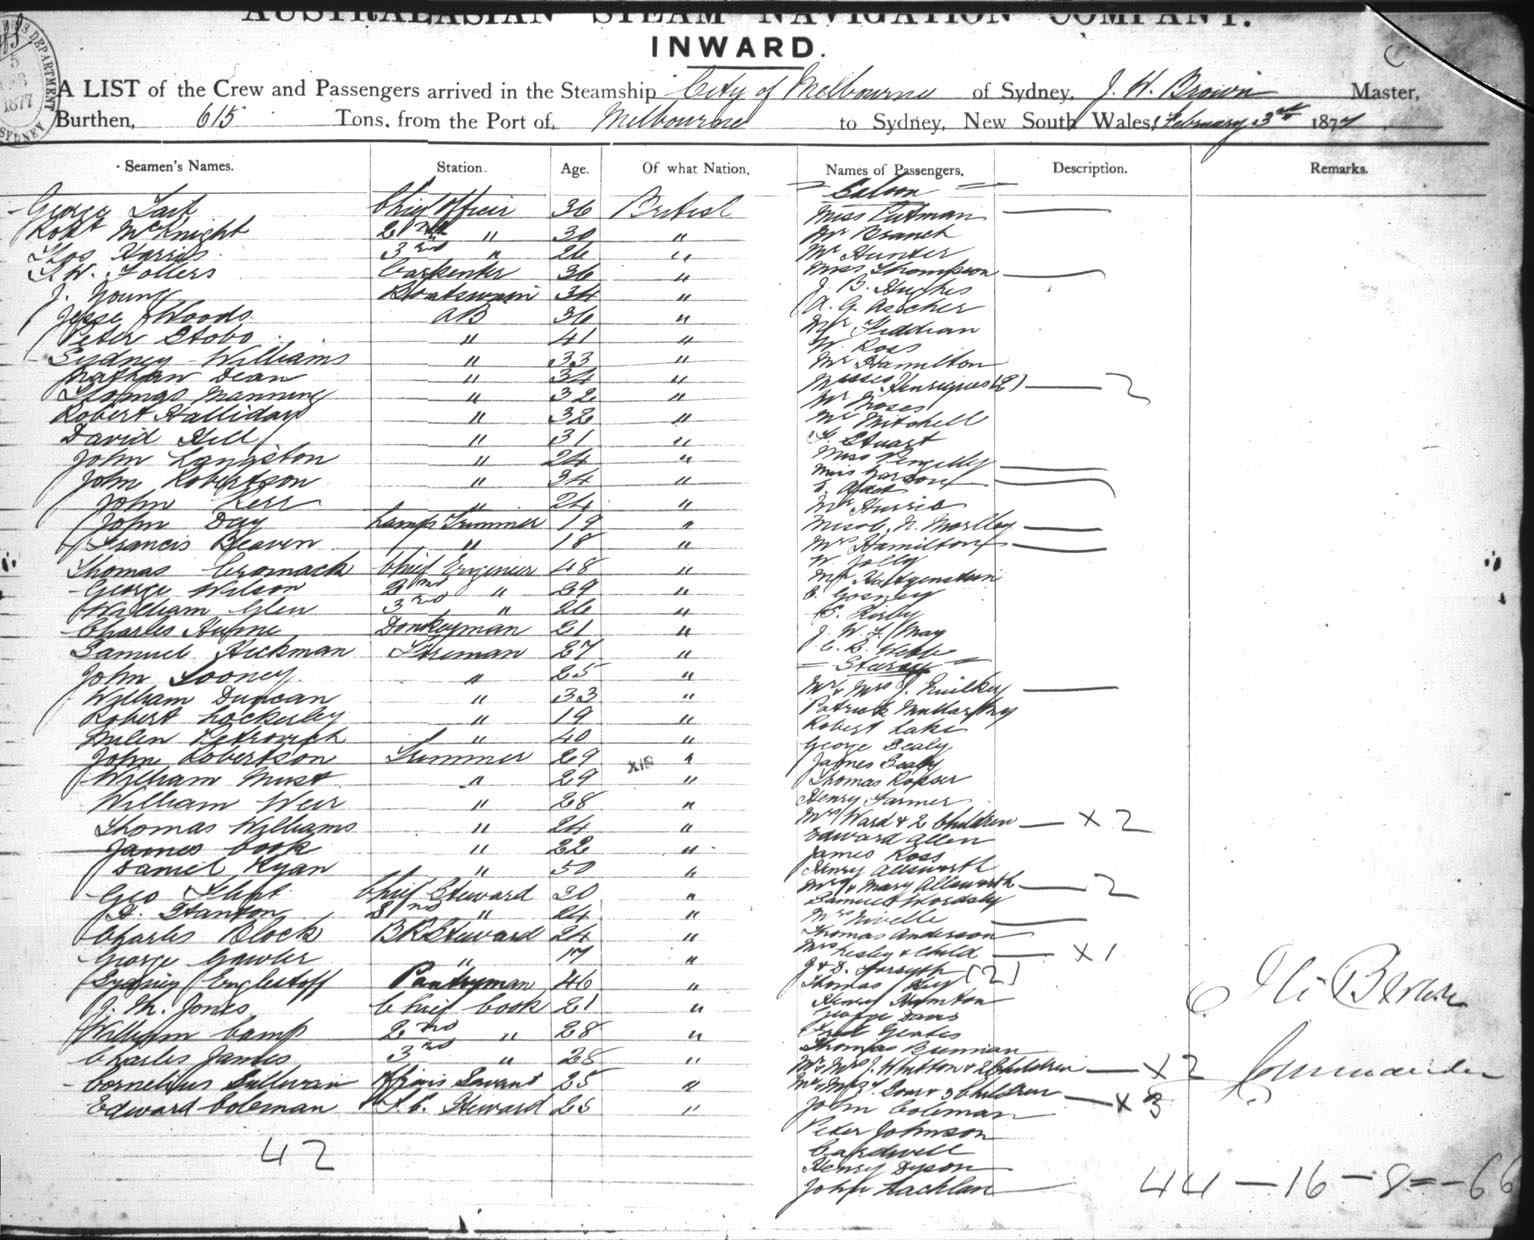 AUSTRALASIAN STEAM NAVIGATION COMPANY.
INWARD.
A LIST of the Crew and Passengers arrived in the Steamship City of Melbourne of Sydney, J. H. Brown Master,
Burthen, 615 Tons, from the Port of Melbourne to Sydney, New South Wales, February 3rd 1877
DEPARTMENT 5 1877 SYDNEY
Seamen's Names. Station. Age. Of what Nation.
George Tait Chief Officer 36 British
Robt McKnight 2nd " 30 "
Thos Harris 3rd " 26 "
Carpenter 36 "
J. Young Boatswain 34 "
Jesse Woods AB 36 "
Peter Stobo " 41 "
Sydney Williams " 33 "
Nathan Dean " 34 "
Thomas Manning " 32 "
Robert Halliday " 32 "
David Hill " 31 "
John Langston " 24 "
John Robertson " 34 "
John Kerr " 24 "
John Day Lamp Trimmer 19 "
Francis Beaven " 18 "
Thomas Cromack Chief Engineer 48 "
George Wilson 2nd " 29 "
William Glen 3rd " 26 "
Charles Hymne Donkeyman 21 "
Samuel Hickman Fireman 27 "
John Looney " 25 "
William Duncan " 33 "
Robert Lockerley " 19 "
Petrovich " 40 "
John Robertson Trimmer 29 "
William Must " 29 "
William Weir " 28 "
Thomas Williams " 24 "
James Cook " 22 "
Daniel Ryan " 50 "
Geo Chief Steward 30 "
Stanton 2nd " 24 "
Charles Block BR Steward 24 "
George Gawler " 17 "
Sydney Englestoff Pantryman 46 "
J. M. Jones Chief Cook 21 "
William Camp 2nd " 28 "
Charles James 3rd " 25 "
Cornelius Sullivan Offrs Servant 25 "
Edward Coleman F.C. Steward 25 "
42
Names of Passengers, Description. Remarks.
Saloon
Miss Putman
Mr Branch
Mr Hunter
Miss Thompson
J. B. Hughes
A. G. Ascher
Mr Feddian
W. Ross
Mr Hamilton
Misses Henriques (2) 2
Mr Moses
Mr Mitchell
Stuart
Miss Pengelly
Miss
Mr Harris
N. Morlley
Mrs Hamilton
W Jolly
Mr
C. Gosney
C. Kirby
J. W. F. May
C. B. Webb
Steerage
Mr & Mrs J.
Patrick Mullarkey
Robert Lake
George Sealy
James Sealy
Thomas Roper
Henry Farmer
Mrs Ward & 2 Children X 2
Edward Allen
James Ross
Henry Allsworth
Mrs & Mary Allsworth 2
Samuel Wordsly
Mrs Nivelle
Thomas Anderson
Mrs Lesley & Child X 1
J & D. Forsyth (2)
Thomas Key
Henry Hampton
George Davis
Thomas Brennan
Mr Mrs J. Whitson & 2 Children X 2
Mr Mrs & 3 Children X 3
John Coleman
Peter Johnson
Cardwell
Henry Dyson
John Lachlan
J H Brown
Commander
44 — 16 — 8 = 66